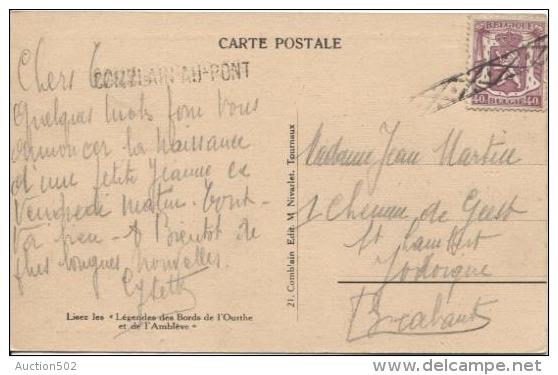 CARTE POSTALE
BELGIQUE
40 BELGIE 40
COMBLAIN-AU-PONT
Chers
Quelques mots pour vous
annoncer la naissance
d'une petite Jeanne ce
Vendredi matin. Tout
va bien - A Bientôt de
plus longues nouvelles.
Lisez les « Légendes des Bords de l'Ourthe
et de l'Amblève »
21. Comblain Edit. M Nivarlet, Tournaux
Madame Jean Martin
1 Chemin de Geest
St Lambert
Jodoigne
Brabant
Auction502
www.delcampe.net